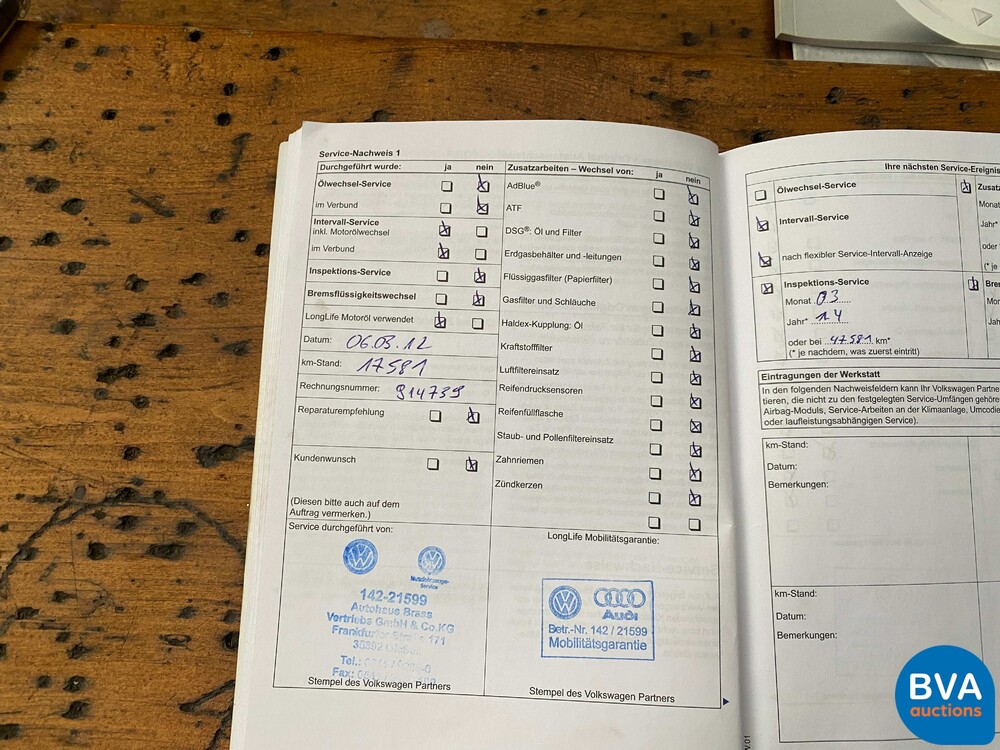 Service-Nachweis 1
Durchgeführt wurde: ja nein
Ölwechsel-Service
im Verbund
Intervall-Service
inkl. Motorölwechsel
im Verbund
Inspektions-Service
Bremsflüssigkeitswechsel
LongLife Motoröl verwendet
Datum: 06.03.12
km-Stand: 17581
Rechnungsnummer: 914739
Reparaturempfehlung
Kundenwunsch
(Diesen bitte auch auf dem
Auftrag vermerken.)
Zusatzarbeiten – Wechsel von: ja nein
AdBlue®
ATF
DSG®: Öl und Filter
Erdgasbehälter und -leitungen
Flüssiggasfilter (Papierfilter)
Gasfilter und Schläuche
Haldex-Kupplung: Öl
Kraftstofffilter
Luftfiltereinsatz
Reifendrucksensoren
Reifenfüllflasche
Staub- und Pollenfiltereinsatz
Zahnriemen
Zündkerzen
Service durchgeführt von:
Nutzfahrzeuge
Service
142-21599
Autohaus Brass
Vertriebs GmbH & Co.KG
Frankfurter Straße 171
Tel.:
Fax:
Stempel des Volkswagen Partners
LongLife Mobilitätsgarantie:
Audi
Betr.-Nr. 142 / 21599
Mobilitätsgarantie
Stempel des Volkswagen Partners
Ihre nächsten Service-Ereignis
Ölwechsel-Service
Intervall-Service
nach flexibler Service-Intervall-Anzeige
Inspektions-Service
Monat 03
Jahr* 14
oder bei 47581 km*
(* je nachdem, was zuerst eintritt)
Zusat
Monat
Jahr*
oder
(* je
Bre
Mor
Jah
od
(*
Eintragungen der Werkstatt
In den folgenden Nachweisfeldern kann Ihr Volkswagen Partne
tieren, die nicht zu den festgelegten Service-Umfängen gehöre
Airbag-Moduls, Service-Arbeiten an der Klimaanlage, Umcodie
oder laufleistungsabhängigen Service).
km-Stand:
Datum:
Bemerkungen:
km-Stand:
Datum:
Bemerkungen:
BVA
auctions